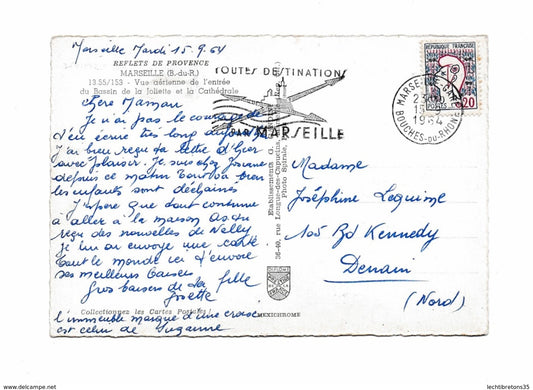 Marseille Mardi 15.9.64
REFLETS DE PROVENCE
MARSEILLE (B.-du-R.)
13.55/153 - Vue aérienne de l'entrée
du Bassin de la Joliette et la Cathédrale
Chère Maman
Je n'ai pas le courage de
t'en écrire très long aujourd'hui
J'ai bien reçu ta lettre d'hier
avec plaisir. Je suis chez Josiane
depuis ce matin tout va bien
les enfants sont déchainés
J'espère que tout continue
à aller à la maison. As du
reçu des nouvelles de Nelly
je lui ai envoyé une carte
tout le monde ici t'envoie
ses meilleurs baisers
Gros baisers de ta fille
Josette
Collectionnez les Cartes Postales !
l'immeuble marqué d'une croix
est celui de Suzanne
TOUTES DESTINATIONS
PAR MARSEILLE
Etablissements G.
36-40, rue Longue-des-Capucins,
Photo Spirale,
MEXICHROME
REPUBLIQUE FRANCAISE
POSTES
0,20
MARSEILLE
15-9
1964
BOUCHES-DU-RHONE
Madame
Joséphine Lequime
105 Bd Kennedy
Denain
(Nord)
www.delcampe.net
lechtibretons35